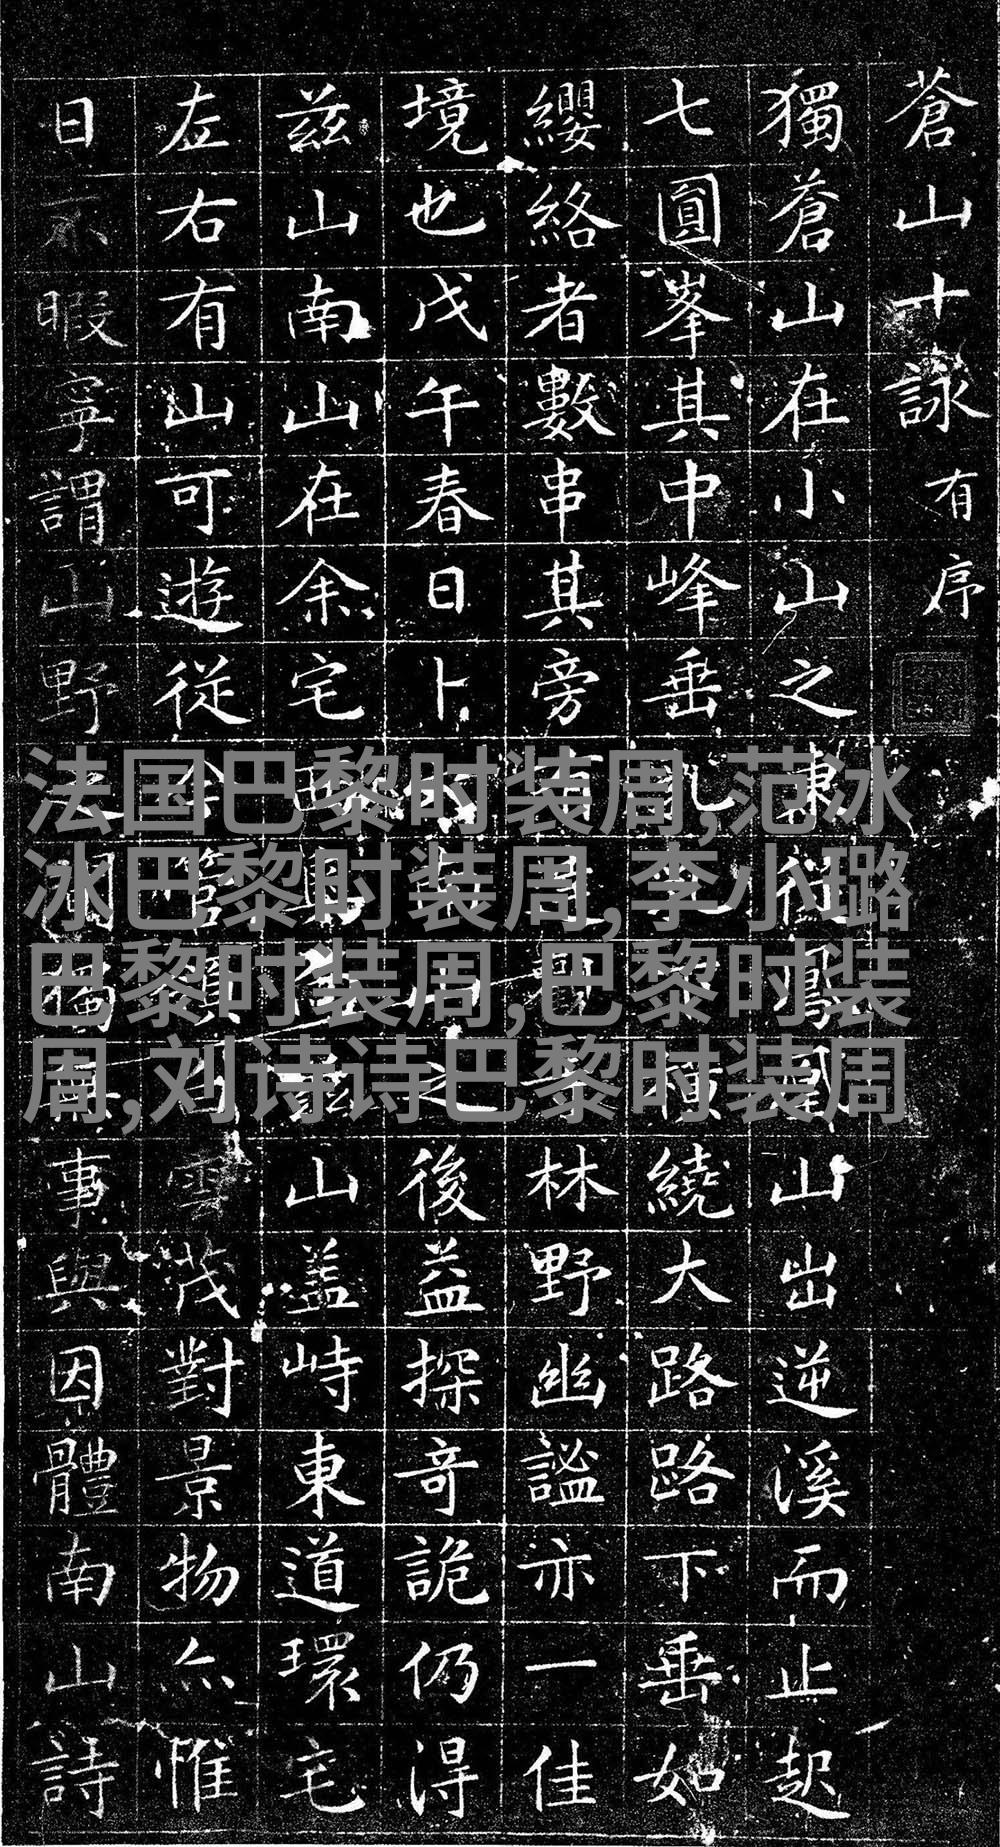 蒼山十詠有序
獨蒼山在小山之東鳴山出逆溪而止起
七圓峯其中峰垂乳繞大路路下垂如
纓絡者數串其旁有林野幽謐亦一佳
境也戊午春日卜之後益探奇詭仍得
茲山南山在余宅山盖峙東道環宅
左右有山可遊從今雲茂對景物亦惟
日不暇寧謂山野之閒獨無事與因體南山詩
法国巴黎时装周,范冰
冰巴黎时装周,李小璐
巴黎时装周,巴黎时装
周,刘诗诗巴黎时装周